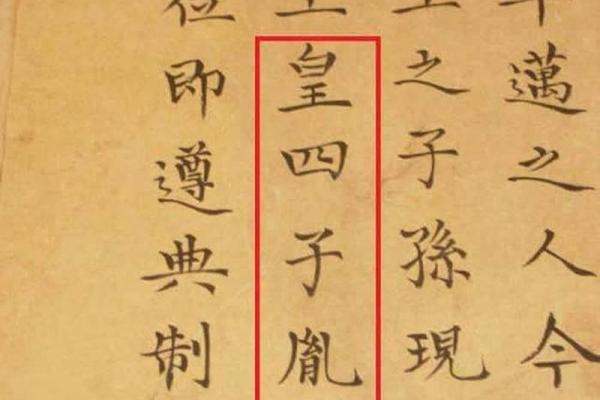 邁之人今
之子孫現
皇四子胤
位即遵典制